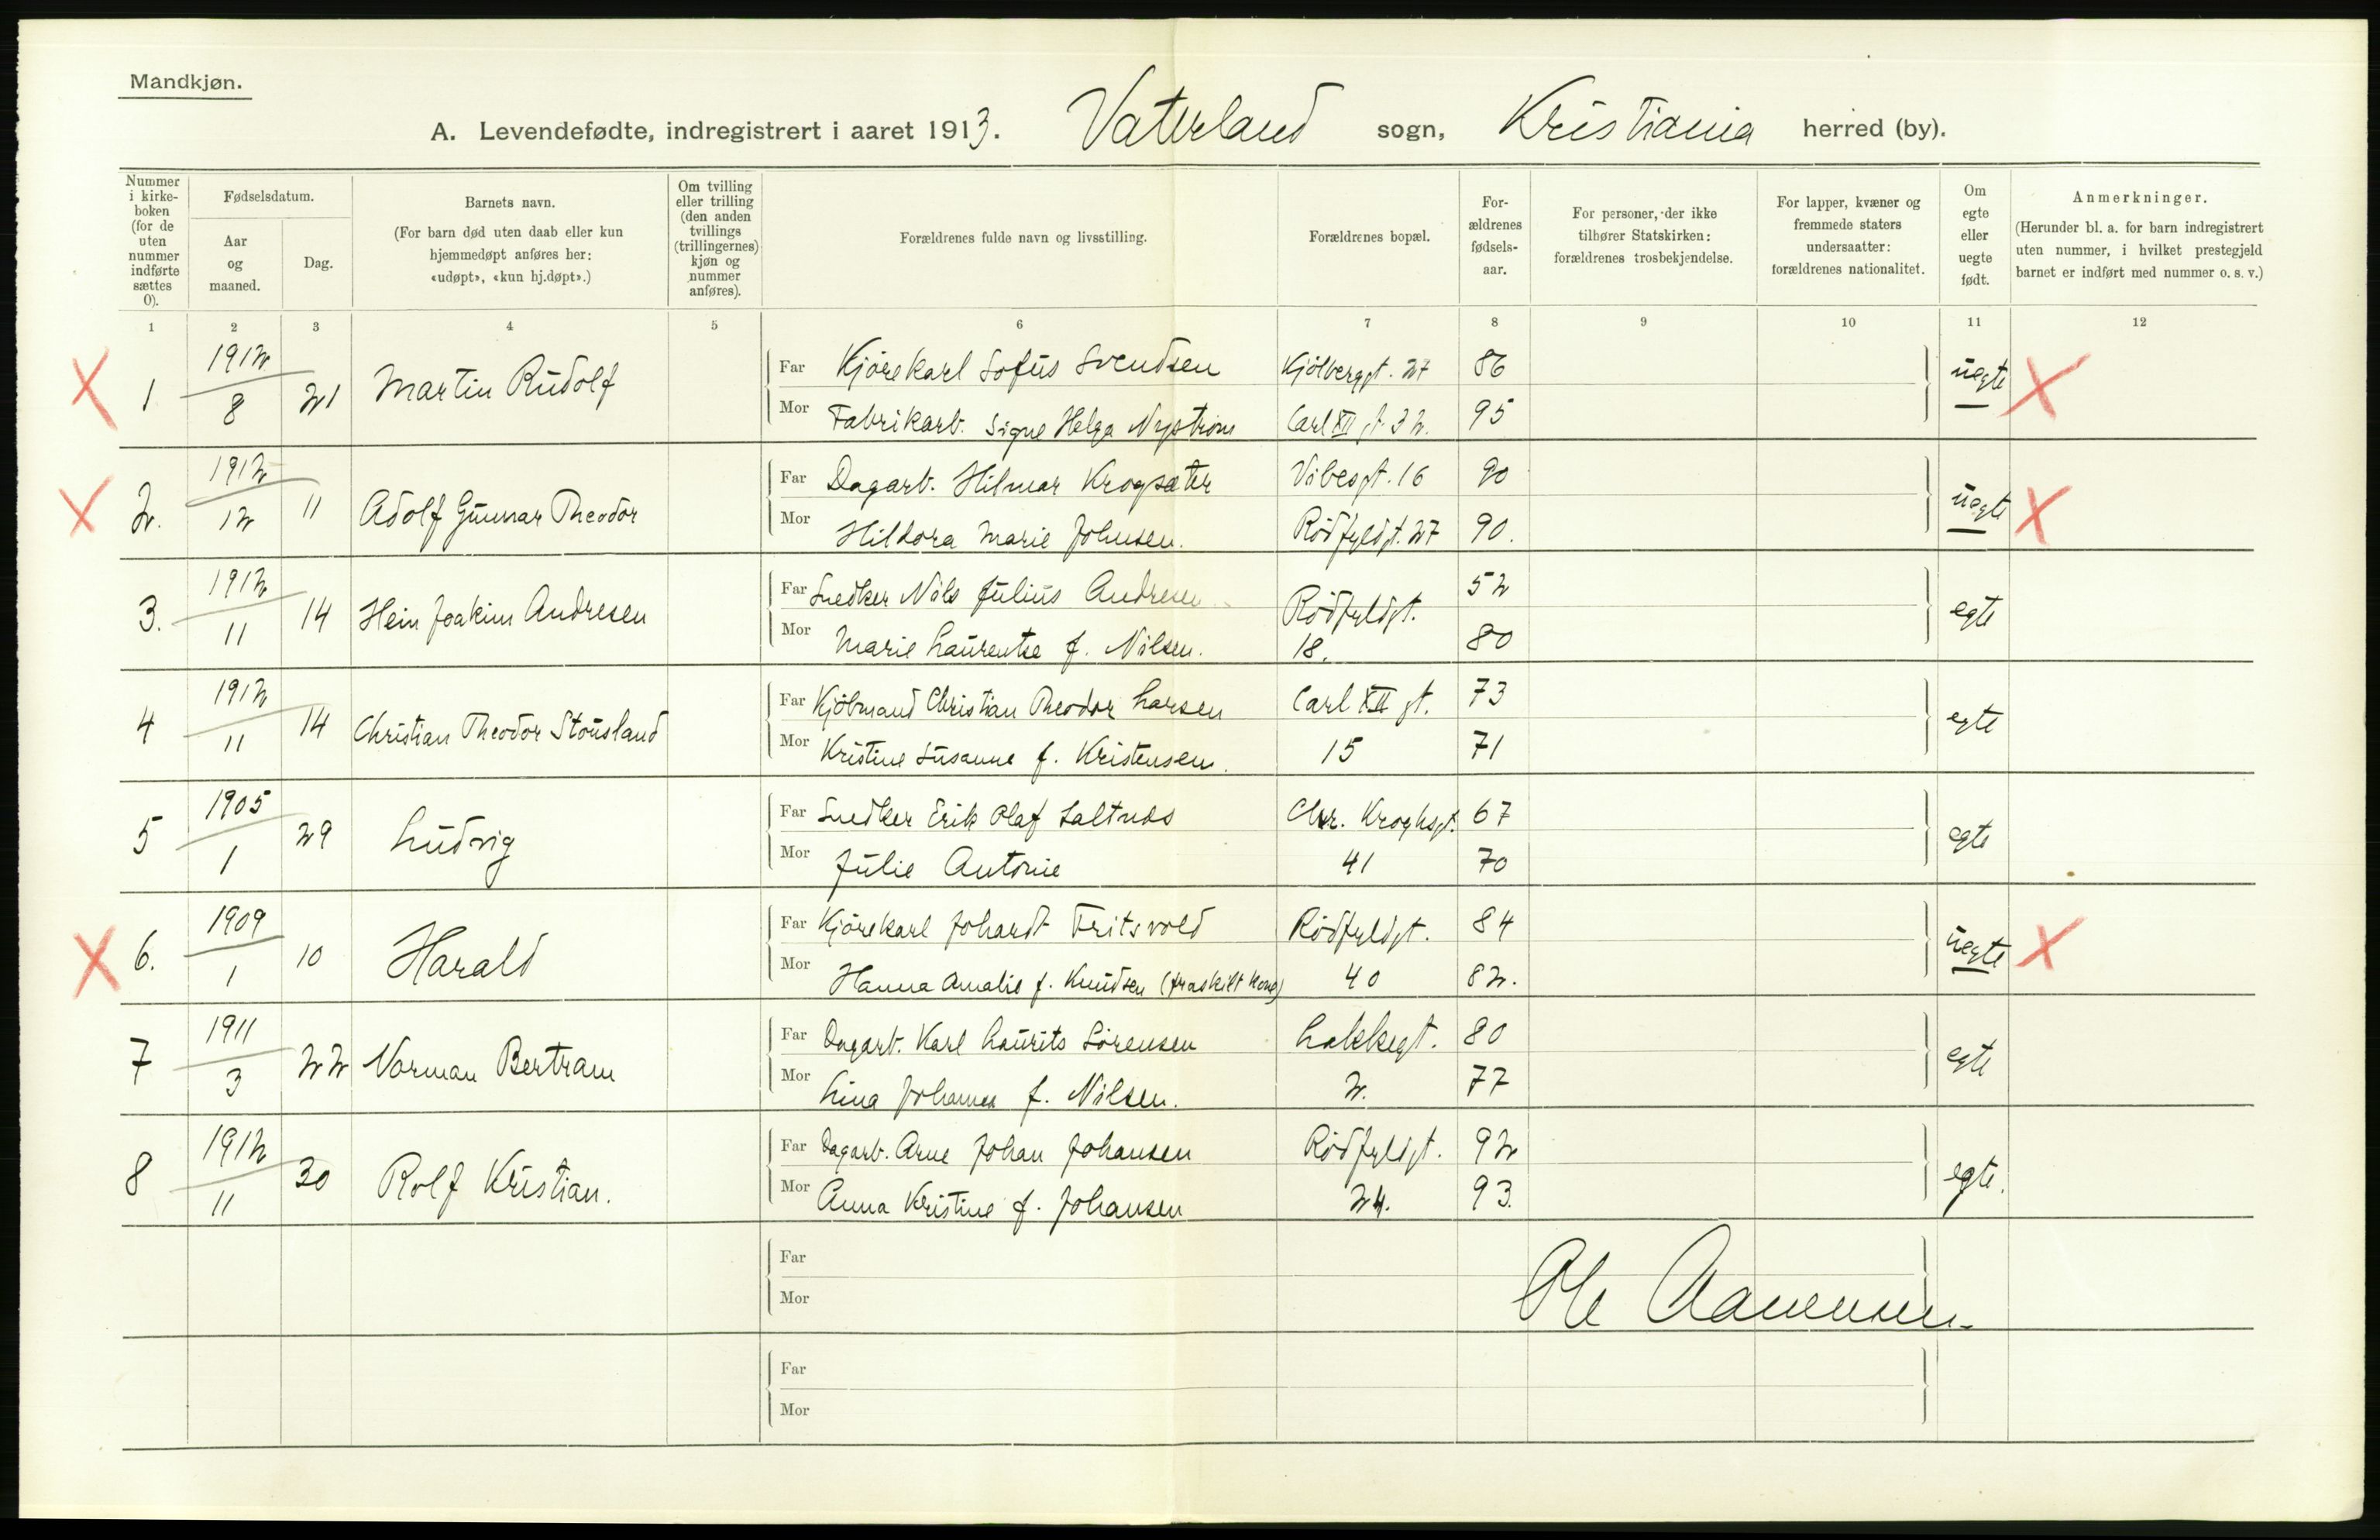 Mandkjøn.
A. Levendefødte, indregistrert i aaret 1913. Vaterland sogn, Kristiania herred (by).
Nummer i kirke-boken (for de uten nummer indførte sættes 0).
Fødselsdatum.
Aar og maaned.
Dag.
Barnets navn.
(For barn død uten daab eller kun hjemmedøpt anføres her: «udøpt», «kun hj.døpt».)
Om tvilling eller trilling (den anden tvillings (trillingernes) kjøn og nummer anføres).
Forældrenes fulde navn og livsstilling.
Forældrenes bopæl.
For-ældrenes fødsels-aar.
For personer, der ikke tilhører Statskirken: forældrenes trosbekjendelse.
For lapper, kvæner og fremmede staters undersaatter: forældrenes nationalitet.
Om egte eller uegte født.
Anmerkninger.
(Herunder bl. a. for barn indregistrert uten nummer, i hvilket prestegjeld barnet er indført med nummer o. s. v.)
1 2 3 4 5 6 7 8 9 10 11 12
1 1912/8 21 Martin Rudolf
Far Kjørekarl Sofus Svendsen Kjølberggt. 27 86 uegte
Mor Fabrikarb. Signe Helga Nystrøm Carl XII gt 32. 95
2. 1912/12 11 Adolf Gunnar Theodor
Far Dagarb. Hilmar Krogsæter Vibesgt. 16 90 uegte
Mor Hildora Marie Johnsen. Rødfyldgt. 27 90.
3. 1912/11 14 Hein Joakim Andresen
Far Snedker Nils Julius Andresen Rødfyldgt. 52 egte
Mor Marie Laurentse f. Nilsen. 18. 80
4 1912/11 14 Christian Theodor Stousland
Far Kjøbmand Christian Theodor Larsen Carl XII gt. 73 egte
Mor Kristine Susanne f. Kristensen. 15 71
5 1905/1 29 Ludvig
Far Snedker Erik Olaf Saltnes Chr. Kroghsgt. 67 egte
Mor Julie Antonie 41 70
6. 1909/1 10 Harald
Far Kjørekarl Johardt Fritsvold Rødfyldgt. 84 uegte
Mor Hanna Amalie f. Knudsen (fraskilt kone) 40 82.
7 1911/3 22 Norman Bertram
Far Dagarb. Karl Laurits Sørensen Lakkegt. 80 egte
Mor Lina Johanna f. Nilsen. 2. 77
8 1912/11 30 Rolf Kristian.
Far Dagarb. Arne Johan Johansen Rødfyldgt. 92 egte.
Mor Anna Kristine f. Johansen 24. 93.
Far
Mor
Ole
Far
Mor